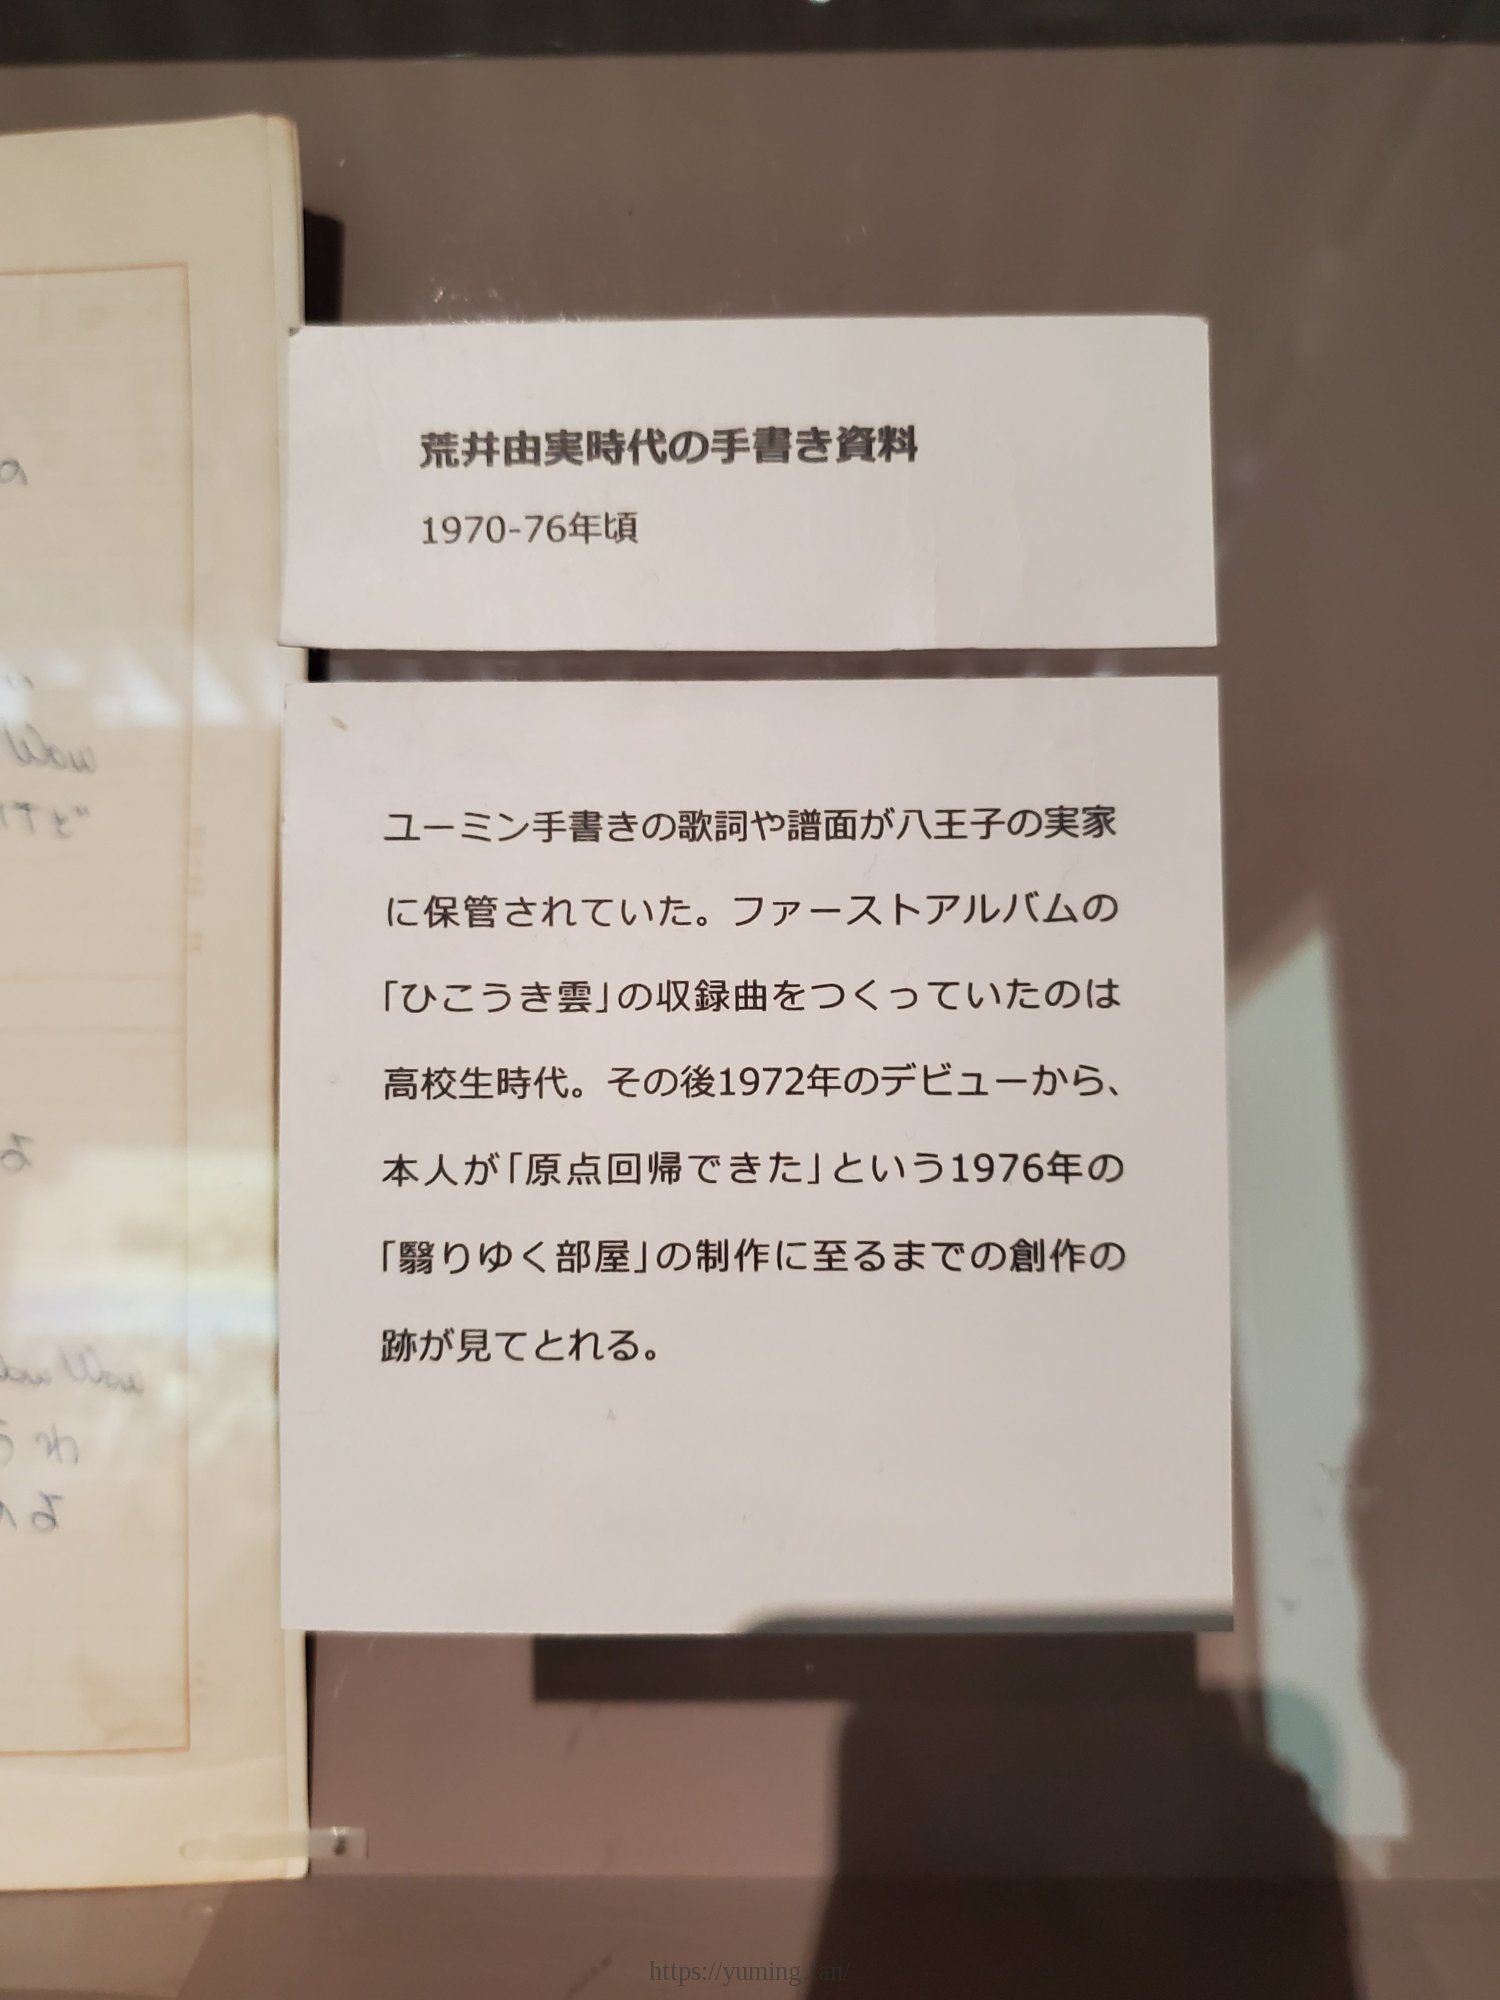 荒井由実時代の手書き資料
1970-76年頃
ユーミン手書きの歌詞や譜面が八王子の実家
に保管されていた。ファーストアルバムの
「ひこうき雲」の収録曲をつくっていたのは
高校生時代。その後1972年のデビューから、
本人が「原点回帰できた」という1976年の
「翳りゆく部屋」の制作に至るまでの創作の
跡が見てとれる。
の
Wow
けど
る
Wow Wow
うわ
のる